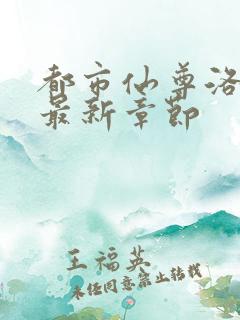 都市仙尊洛
最新章節
王福英
未经同意禁止转载